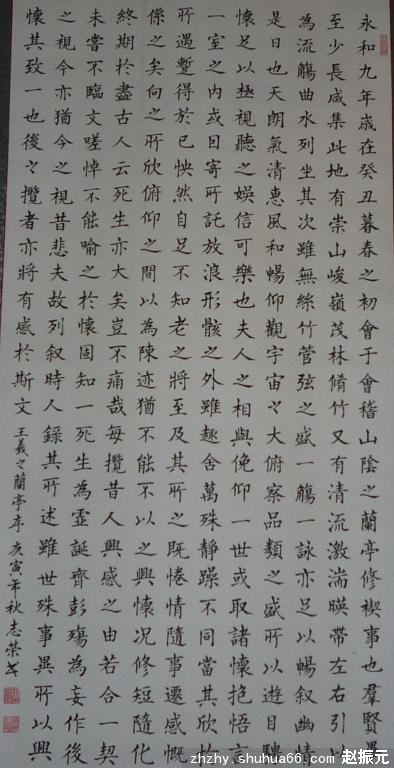 永和九年歲在癸丑暮春之初會于會稽山陰之蘭亭修禊事也羣賢畢
至少長咸集此地有崇山峻嶺茂林脩竹又有清流激湍暎帶左右引以
為流觴曲水列坐其次雖無絲竹管弦之盛一觴一詠亦足以暢叙幽情
是日也天朗氣清惠風和暢仰觀宇宙之大俯察品類之盛所以遊目騁
懷足以極視聽之娛信可樂也夫人之相與俛仰一世或取諸懷抱悟言
一室之內或因寄所託放浪形骸之外雖趣舍萬殊靜躁不同當其欣於
所遇蹔得於己怏然自足不知老之將至及其所之既惓情隨事遷感慨
係之矣向之所欣俯仰之間以為陳迹猶不能不以之興懷況修短隨化
終期於盡古人云死生亦大矣豈不痛哉每攬昔人興感之由若合一契
未嘗不臨文嗟悼不能喻之於懷固知一死生為虛誕齊彭殤為妄作後
之視今亦猶今之視昔悲夫故列叙時人錄其所述雖世殊事異所以興
懷其致一也後之攬者亦將有感於斯文 王羲之蘭亭序 庚寅年秋志榮書
zhzhy.shuhua66.com 赵振元